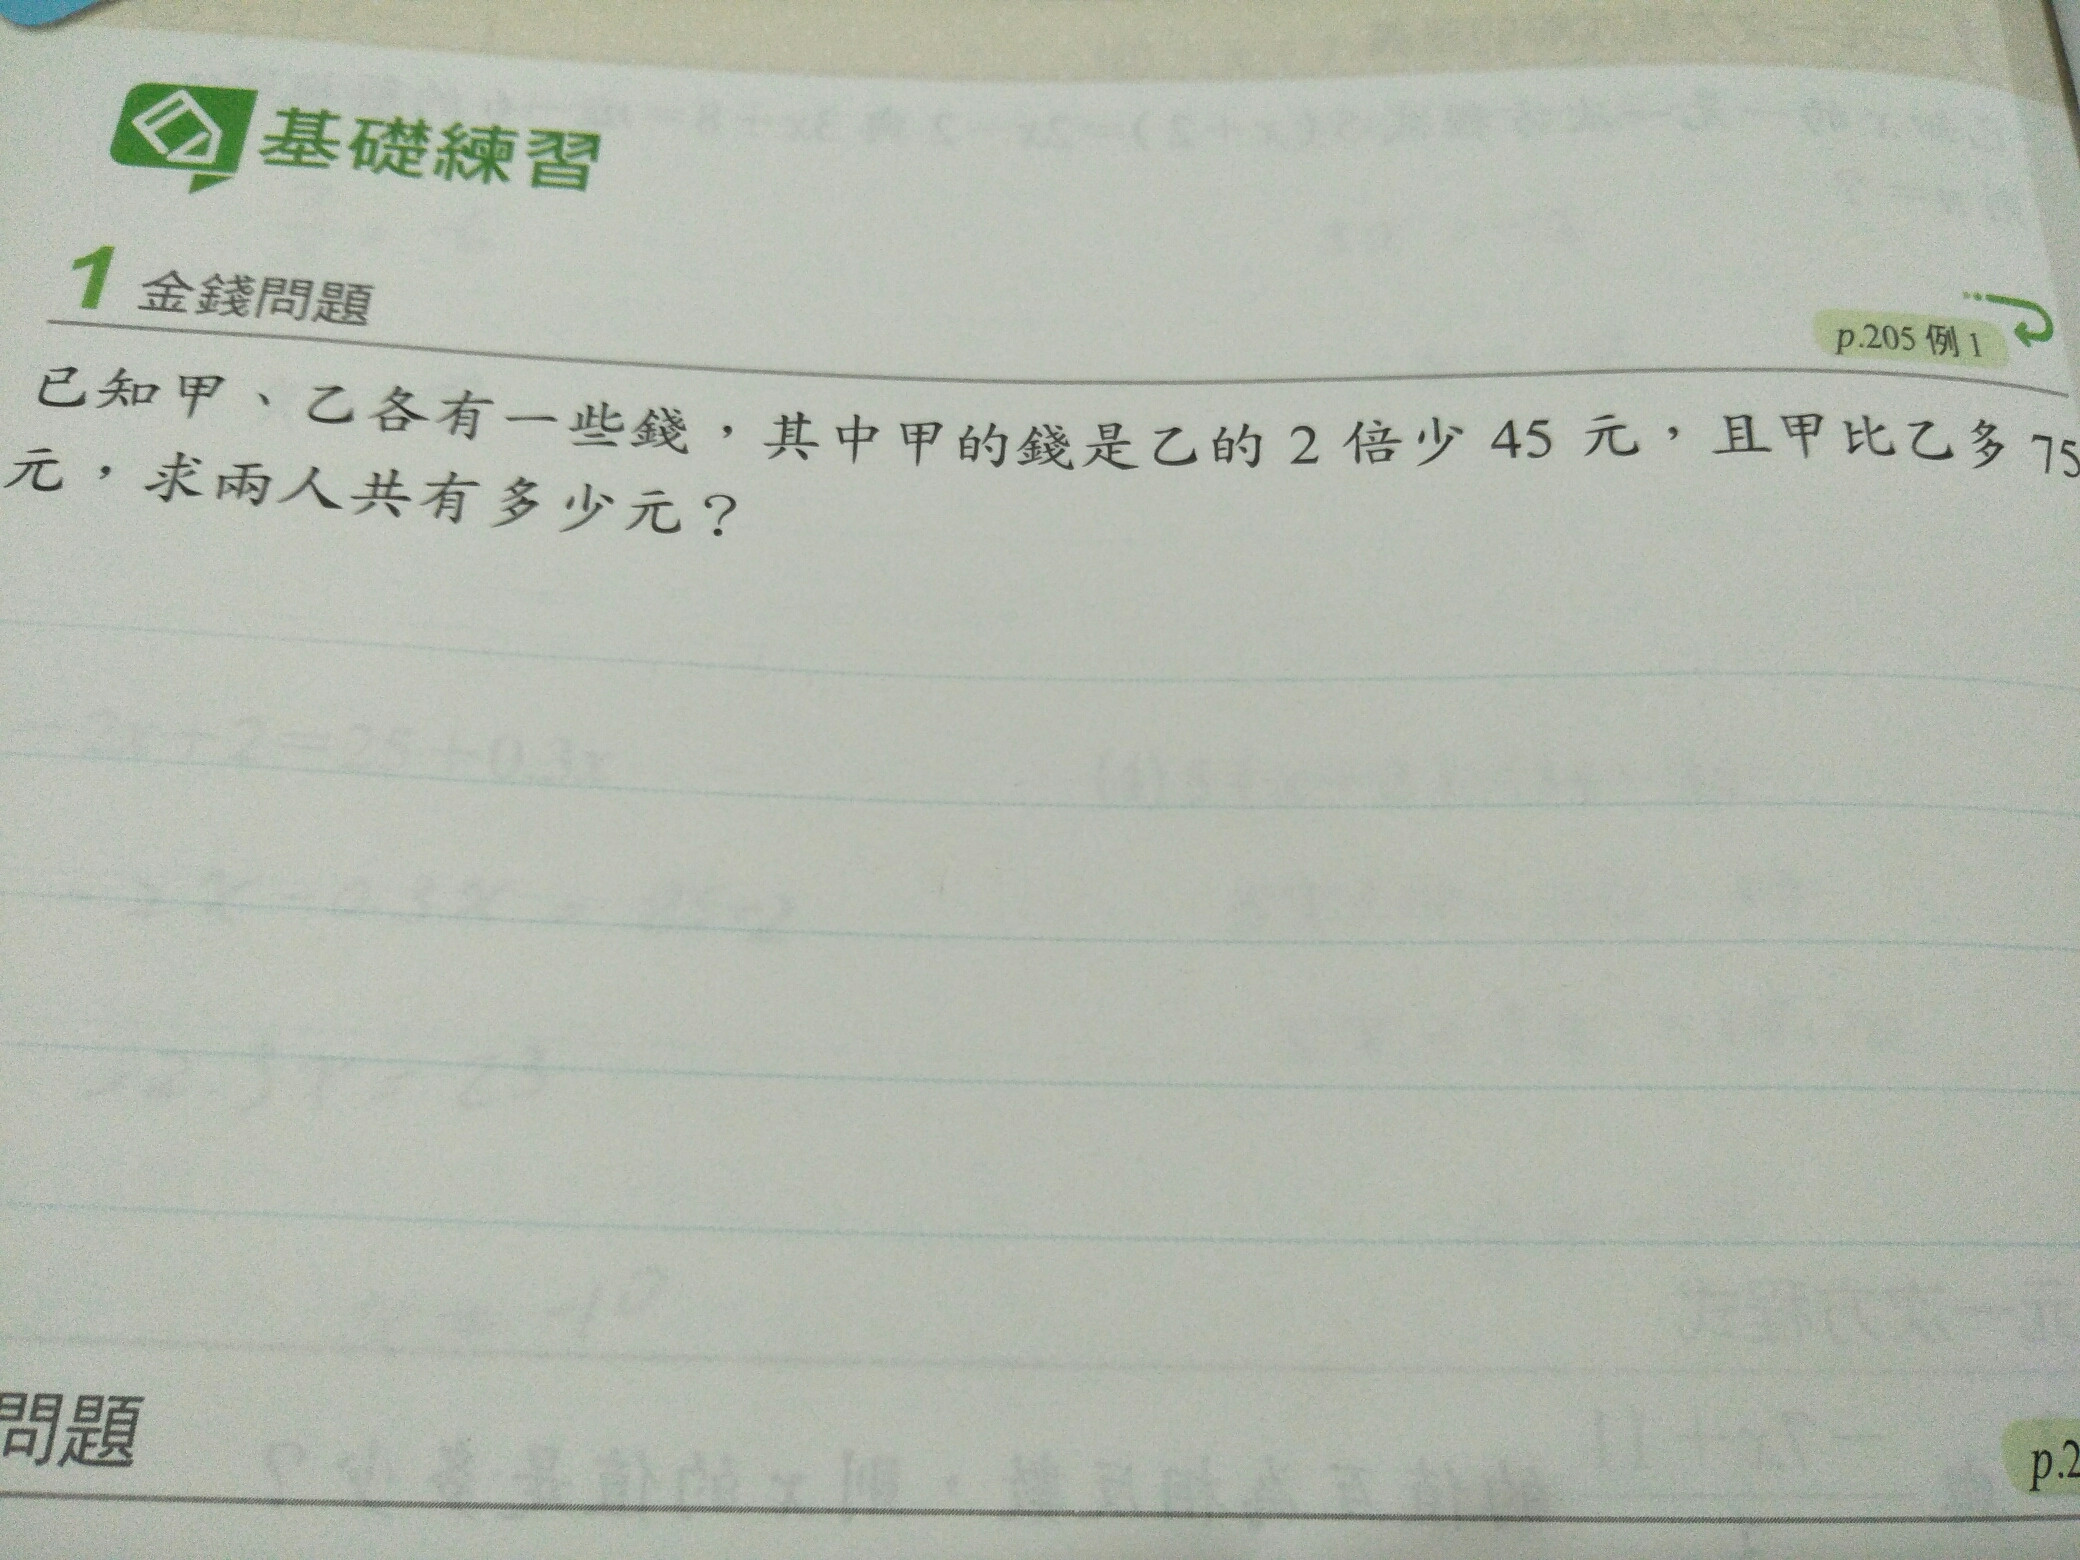 基礎練習
1 金錢問題
p.205 例 1
已知甲、乙各有一些錢，其中甲的錢是乙的 2 倍少 45 元，且甲比乙多 75
元，求兩人共有多少元？
問題
p.2